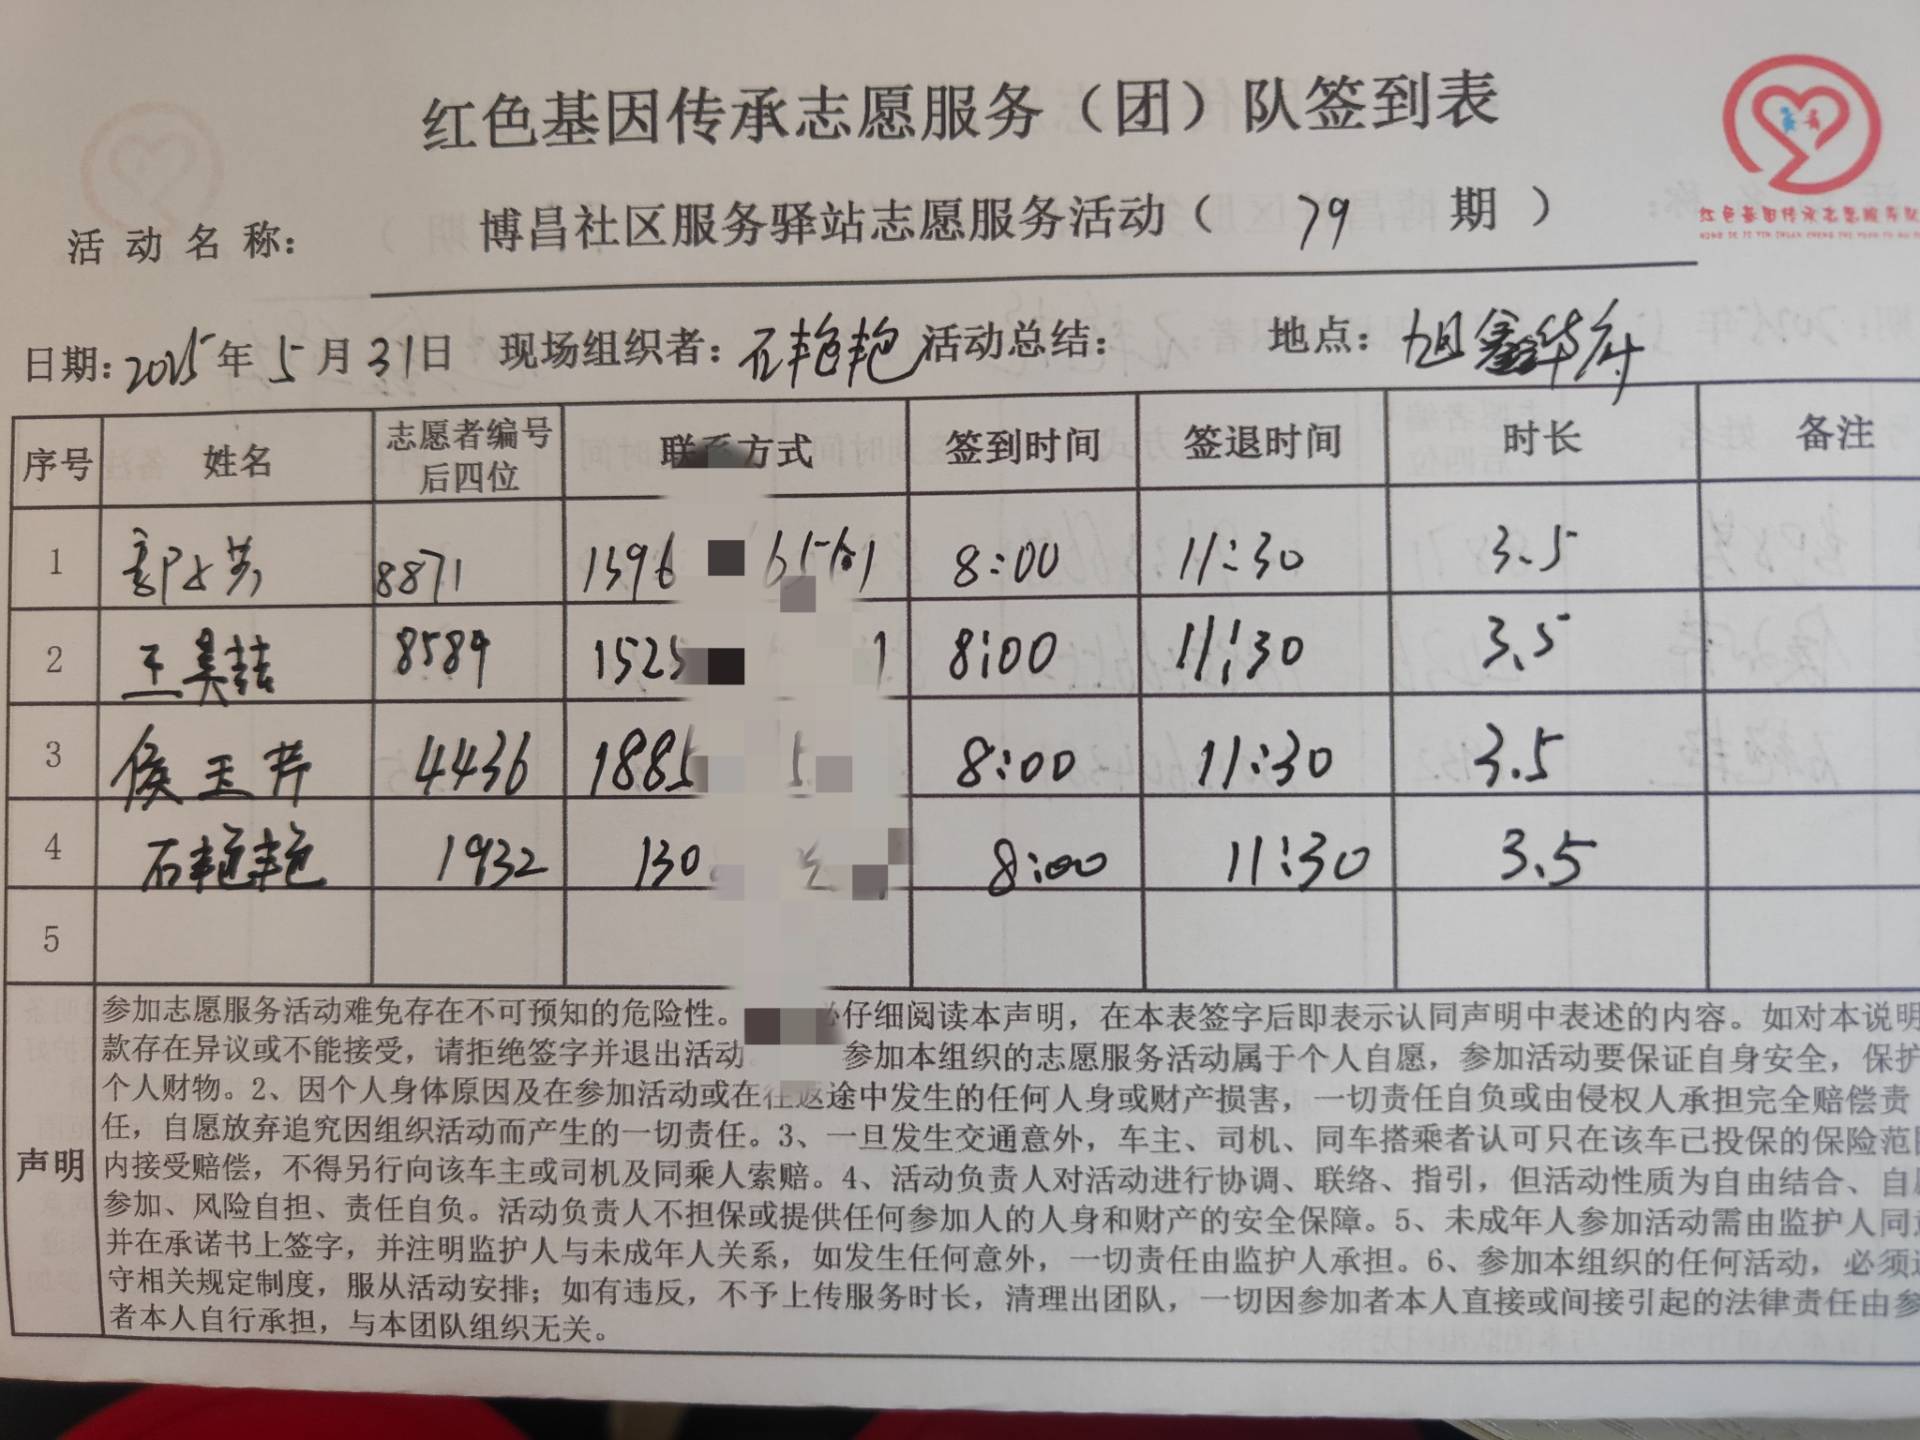 红色基因传承志愿服务（团）队签到表
活动名称： 博昌社区服务驿站志愿服务活动（ 79 期 ）
红色基因传承志愿服务队
日期：2025年5月31日 现场组织者：石艳艳 活动总结： 地点：旭鑫华府
序号 姓名 志愿者编号后四位 联系方式 签到时间 签退时间 时长 备注
1 8871 1396 8:00 11:30 3.5
2 8584 1525 1 8:00 11:30 3.5
3 侯玉芹 4436 1885 8:00 11:30 3.5
4 石艳艳 1932 130 8:00 11:30 3.5
5
声明
参加志愿服务活动难免存在不可预知的危险性。 仔细阅读本声明，在本表签字后即表示认同声明中表述的内容。如对本说明
款存在异议或不能接受，请拒绝签字并退出活动 参加本组织的志愿服务活动属于个人自愿，参加活动要保证自身安全，保护
个人财物。2、因个人身体原因及在参加活动或在往返途中发生的任何人身或财产损害，一切责任自负或由侵权人承担完全赔偿责
任，自愿放弃追究因组织活动而产生的一切责任。3、一旦发生交通意外，车主、司机、同车搭乘者认可只在该车已投保的保险范围
内接受赔偿，不得另行向该车主或司机及同乘人索赔。4、活动负责人对活动进行协调、联络、指引，但活动性质为自由结合、自愿
参加、风险自担、责任自负。活动负责人不担保或提供任何参加人的人身和财产的安全保障。5、未成年人参加活动需由监护人同意
并在承诺书上签字，并注明监护人与未成年人关系，如发生任何意外，一切责任由监护人承担。6、参加本组织的任何活动，必须遵
守相关规定制度，服从活动安排；如有违反，不予上传服务时长，清理出团队，一切因参加者本人直接或间接引起的法律责任由参
者本人自行承担，与本团队组织无关。